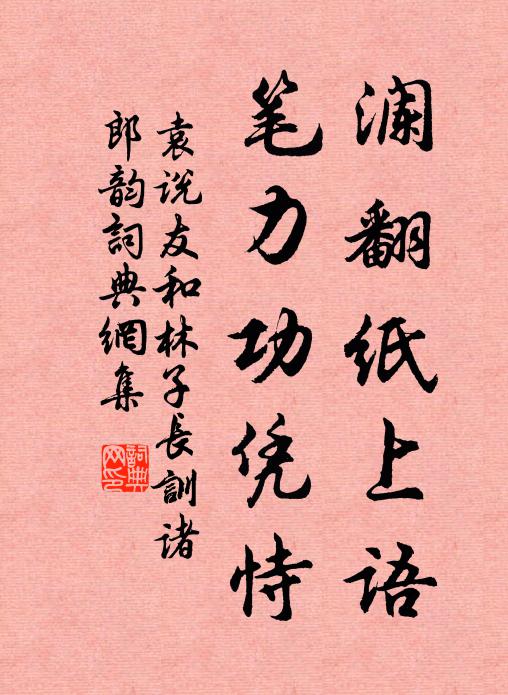 澜翻纸上语
笔力功凭恃
袁说友和林子長訓诸
郎韵詞典網集
詞典网印